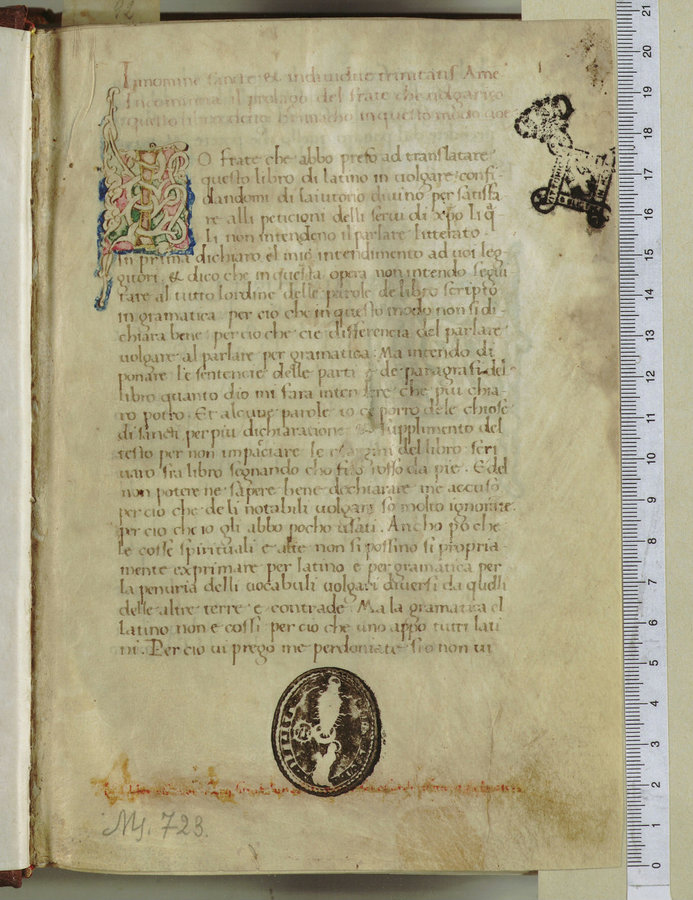 Innomine sancte et individue trinitatis Ame
Incomincia il prolago del frate che volgarizo
questo libro in questo modo
IO frate che abbo preso ad translatare
questo libro di latino in volgare confi-
dandomi di laiutorio divino per satisfa
re alli peticioni delli servi di xpo li q̄-
li non intendeno il parlare litterato.
in prima dichiaro el mio intendimento ad voi leg
gitori. et dico che in questa opera non intendo segui
tare al tutto lordine delle parole de libro scripto
in gramatica. per cio che in questo modo non si di-
chiara bene. per cio che cie differencia del parlare
volgare al parlare per gramatica. Ma intendo di
ponare le sentencie delle parti e de paragrafi del
libro quanto dio mi fara intendere che piu chia-
ro potro. Et alcune parole io ci porro dele chiose
di sancti per piu dichiaracione supplimento del
testo per non impaciare le del libro. scri
varo fra libro segnando cho filo rosso da pie. E del
non potere ne sapere bene dechiarare me accuso
per cio che deli notabili volgari so molto ignorante.
per cio che io gli abbo pocho usati. Ancho po che
le cose spirituali e alte non si possino si propria-
mente exprimare per latino e per gramatica per
la penuria delli vocabuli volgari diversi da quelli
delle altre terre e contrade. Ma la gramatica el
latino non e cossi per cio che uno appo tutti lati
ni. Per cio vi prego me perdoniate sio non vi
Ms. 723.
0 1 2 3 4 5 6 7 8 9 10 11 12 13 14 15 16 17 18 19 20 21